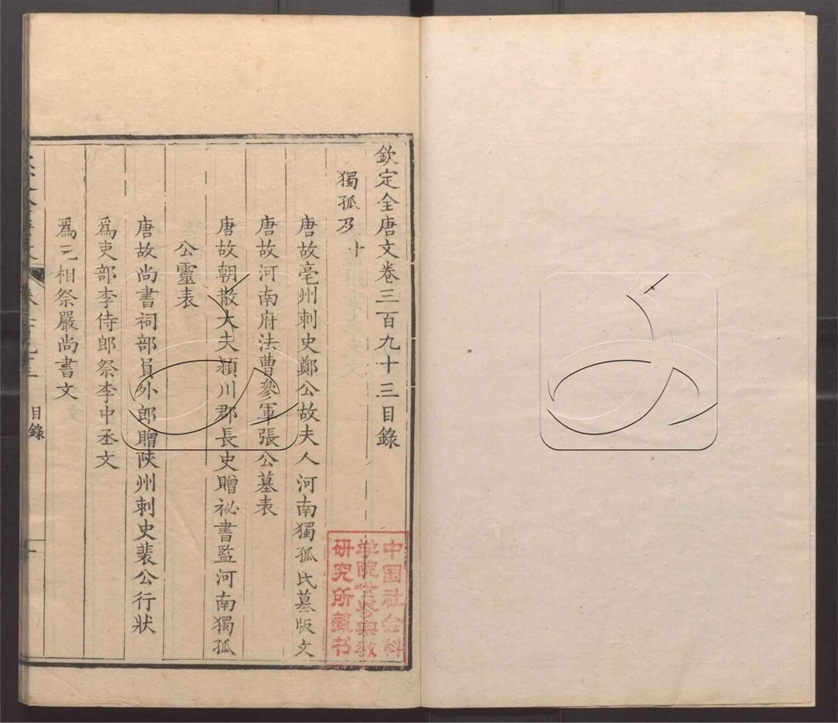 欽定全唐文卷三百九十三目錄
獨孤及十
唐故亳州刺史鄭公故夫人河南獨孤氏墓版文
唐故河南府法曹參軍張公墓表
唐故朝散大夫潁川郡長史贈祕書監河南獨孤
公靈表
唐故尚書祠部員外郎贈陝州刺史裴公行狀
爲吏部李侍郎祭李中丞文
爲元相祭嚴尚書文
目錄
一
中国社会科
学院世界宗教
研究所藏书